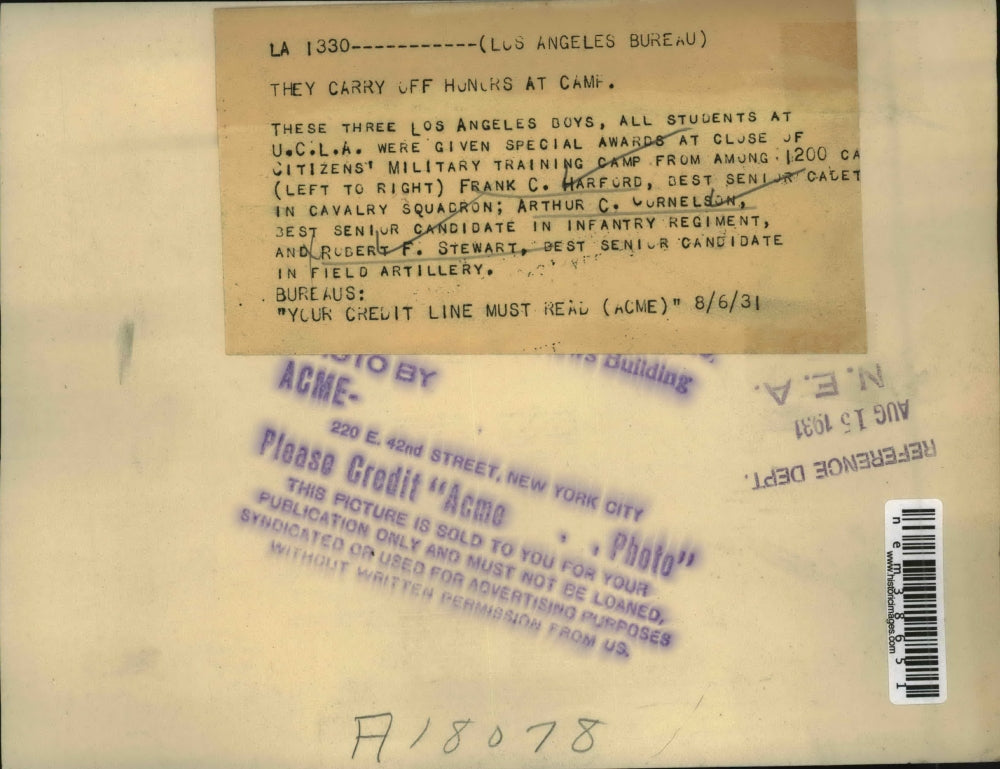 LA 1330------------(LOS ANGELES BUREAU)
THEY CARRY OFF HONORS AT CAMP.
THESE THREE LOS ANGELES BOYS, ALL STUDENTS AT
U.C.L.A. WERE GIVEN SPECIAL AWARDS AT CLOSE OF
CITIZENS' MILITARY TRAINING CAMP FROM AMONG 1200 CA
(LEFT TO RIGHT) FRANK C. HARFORD, BEST SENIOR CADET
IN CAVALRY SQUADRON; ARTHUR C. CORNELSON,
BEST SENIOR CANDIDATE IN INFANTRY REGIMENT,
AND ROBERT F. STEWART, BEST SENIOR CANDIDATE
IN FIELD ARTILLERY.
BUREAUS:
"YOUR CREDIT LINE MUST READ (ACME)" 8/6/31
BY
Building
ACME-
220 E. 42nd STREET, NEW YORK CITY
Please Credit "Acme . . Photo"
THIS PICTURE IS SOLD TO YOU FOR YOUR
PUBLICATION ONLY AND MUST NOT BE LOANED,
SYNDICATED OR USED FOR ADVERTISING PURPOSES
WITHOUT WRITTEN PERMISSION FROM US.
REFERENCE DEPT.
AUG 15 1931
N. E. A.
nem38651
www.historicimages.com
A18078